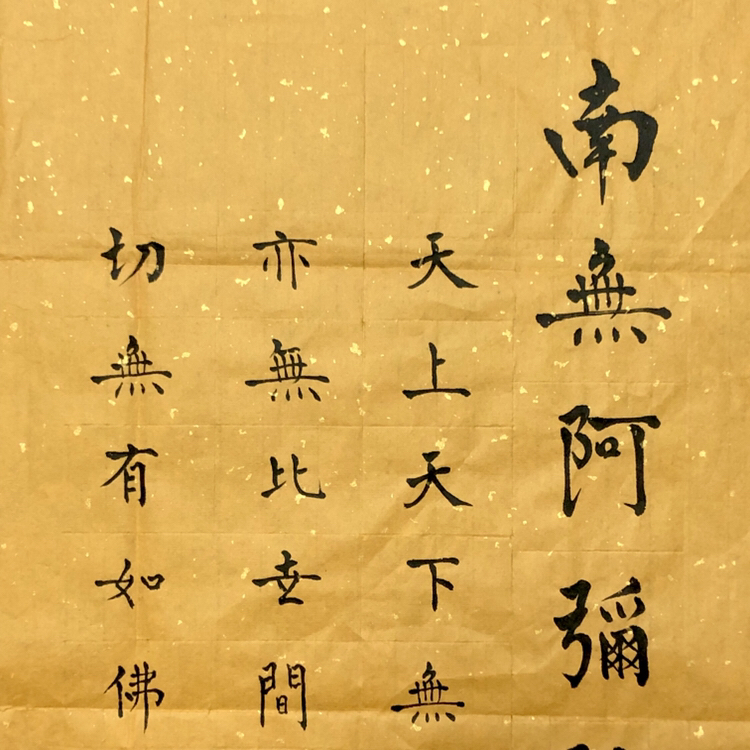 南無阿彌
天上天下無
亦無比世間
切無有如佛